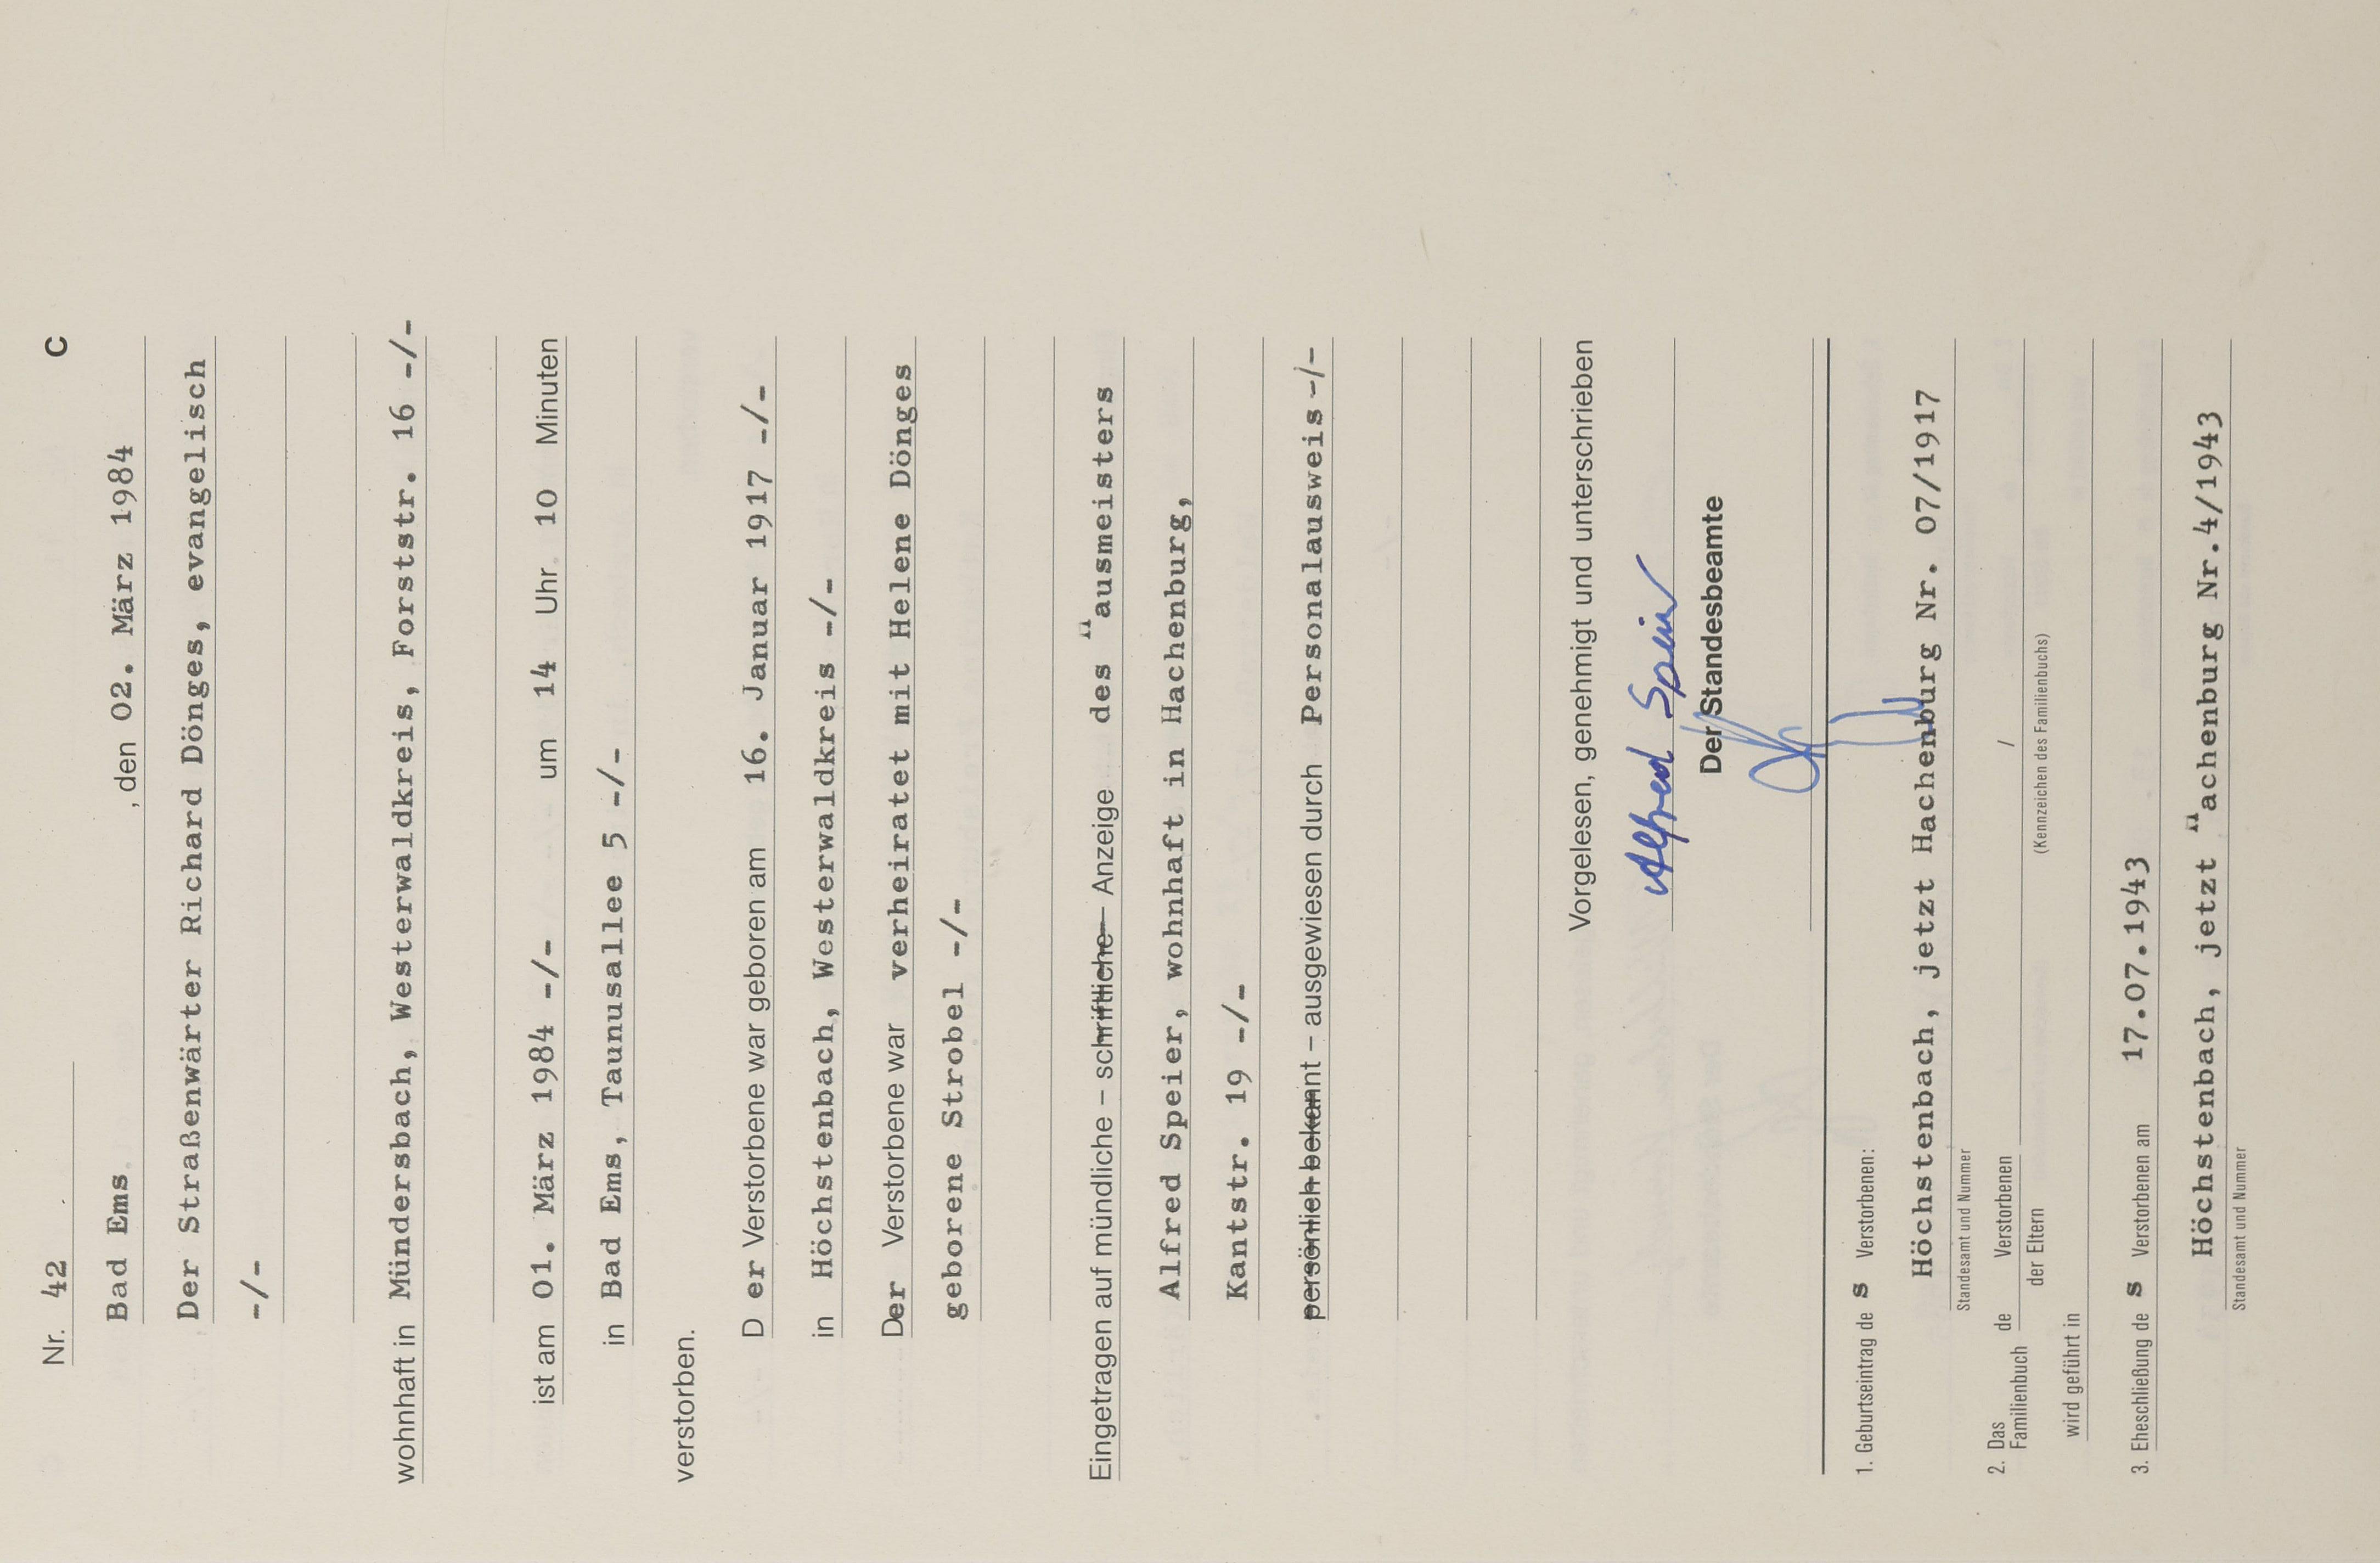 Nr. 42 C
Bad Ems, den 02. März 1984
Der Straßenwärter Richard Dönges, evangelisch
-/-
wohnhaft in Mündersbach, Westerwaldkreis, Forststr. 16 -/-
ist am 01. März 1984 -/- um 14 Uhr 10 Minuten
in Bad Ems, Taunusallee 5 -/-
verstorben.
D er Verstorbene war geboren am 16. Januar 1917 -/-
in Höchstenbach, Westerwaldkreis -/-
Der Verstorbene war verheiratet mit Helene Dönges
geborene Strobel -/-
Eingetragen auf mündliche – schriftliche – Anzeige des Hausmeisters
Alfred Speier, wohnhaft in Hachenburg,
Kantstr. 19 -/-
persönlich bekannt – ausgewiesen durch Personalausweis -/-
Vorgelesen, genehmigt und unterschrieben
Alfred Speier
Der Standesbeamte
1. Geburtseintrag de s Verstorbenen:
Höchstenbach, jetzt Hachenburg Nr. 07/1917
Standesamt und Nummer
2. Das Familienbuch de Verstorbenen /
der Eltern (Kennzeichen des Familienbuchs)
wird geführt in
3. Eheschließung de s Verstorbenen am 17.07.1943
Höchstenbach, jetzt Hachenburg Nr.4/1943
Standesamt und Nummer